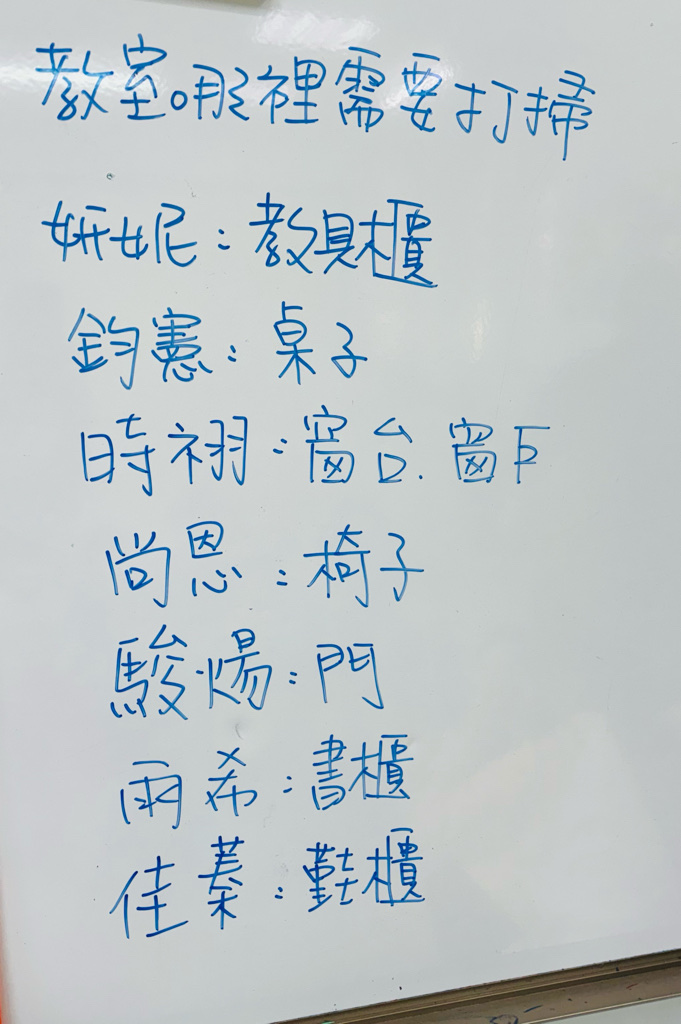 教室哪裡需要打掃
妍妮：教具櫃
鈞憲：桌子
時祤：窗台.窗戶
尚恩：椅子
駿煬：門
雨希：書櫃
佳蓁：鞋櫃